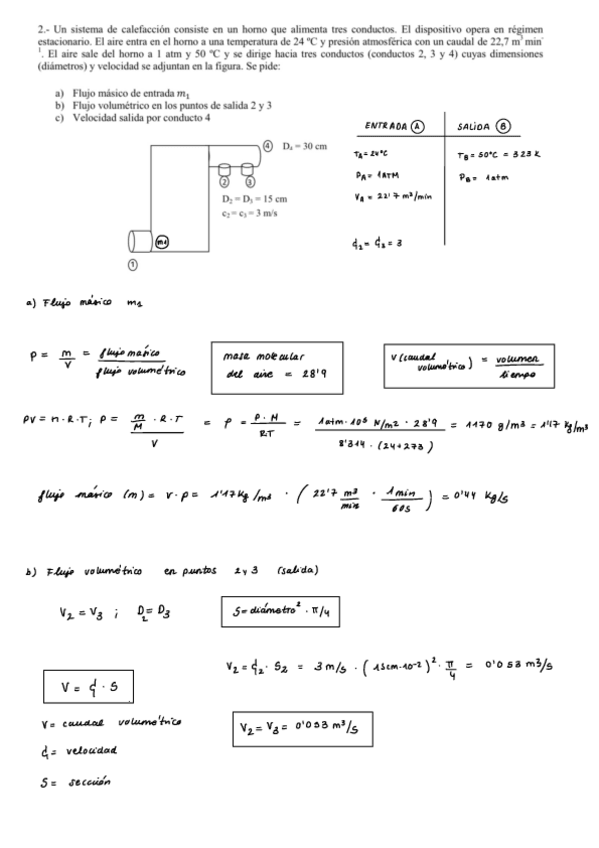 2.- Un sistema de calefacción consiste en un horno que alimenta tres conductos. El dispositivo opera en régimen
estacionario. El aire entra en el horno a una temperatura de 24 ºC y presión atmosférica con un caudal de 22,7 m³ min⁻
¹. El aire sale del horno a 1 atm y 50 ºC y se dirige hacia tres conductos (conductos 2, 3 y 4) cuyas dimensiones
(diámetros) y velocidad se adjuntan en la figura. Se pide:
a) Flujo másico de entrada m₁
b) Flujo volumétrico en los puntos de salida 2 y 3
c) Velocidad salida por conducto 4
④ D₄ = 30 cm
② ③
D₂ = D₃ = 15 cm
c₂ = c₃ = 3 m/s
m₁
①
ENTRADA Ⓐ SALIDA Ⓑ
TA = 24ºC TB = 50ºC = 323 K
PA = 1ATM PB = 1atm
VA = 22'7 m³/min
¢₂ = ¢₃ = 3
a) Flujo másico m₁
ρ = m/V = flujo masico / flujo volumétrico
masa molecular
del aire = 28'9
v (caudal volumétrico) = volumen / tiempo
PV = n·R·T; P = (m/M · R·T) / V = ρ = P·M / RT = 1atm·10⁵ N/m² · 28'9 / 8'314 · (24+273) = 1170 g/m³ = 1'17 kg/m³
flujo másico (m) = v·ρ = 1'17 kg/m³ · (22'7 m³/min · 1min/60s) = 0'44 kg/s
b) Flujo volumétrico en puntos 2 y 3 (salida)
V₂ = V₃ ; D₂ = D₃
S = diámetro² · π/4
V₂ = ¢₂ · S₂ = 3 m/s · (15cm·10⁻²)² · π/4 = 0'053 m³/s
V = ¢ · S
V = caudal volumétrico
V₂ = V₃ = 0'053 m³/s
¢ = velocidad
S = sección